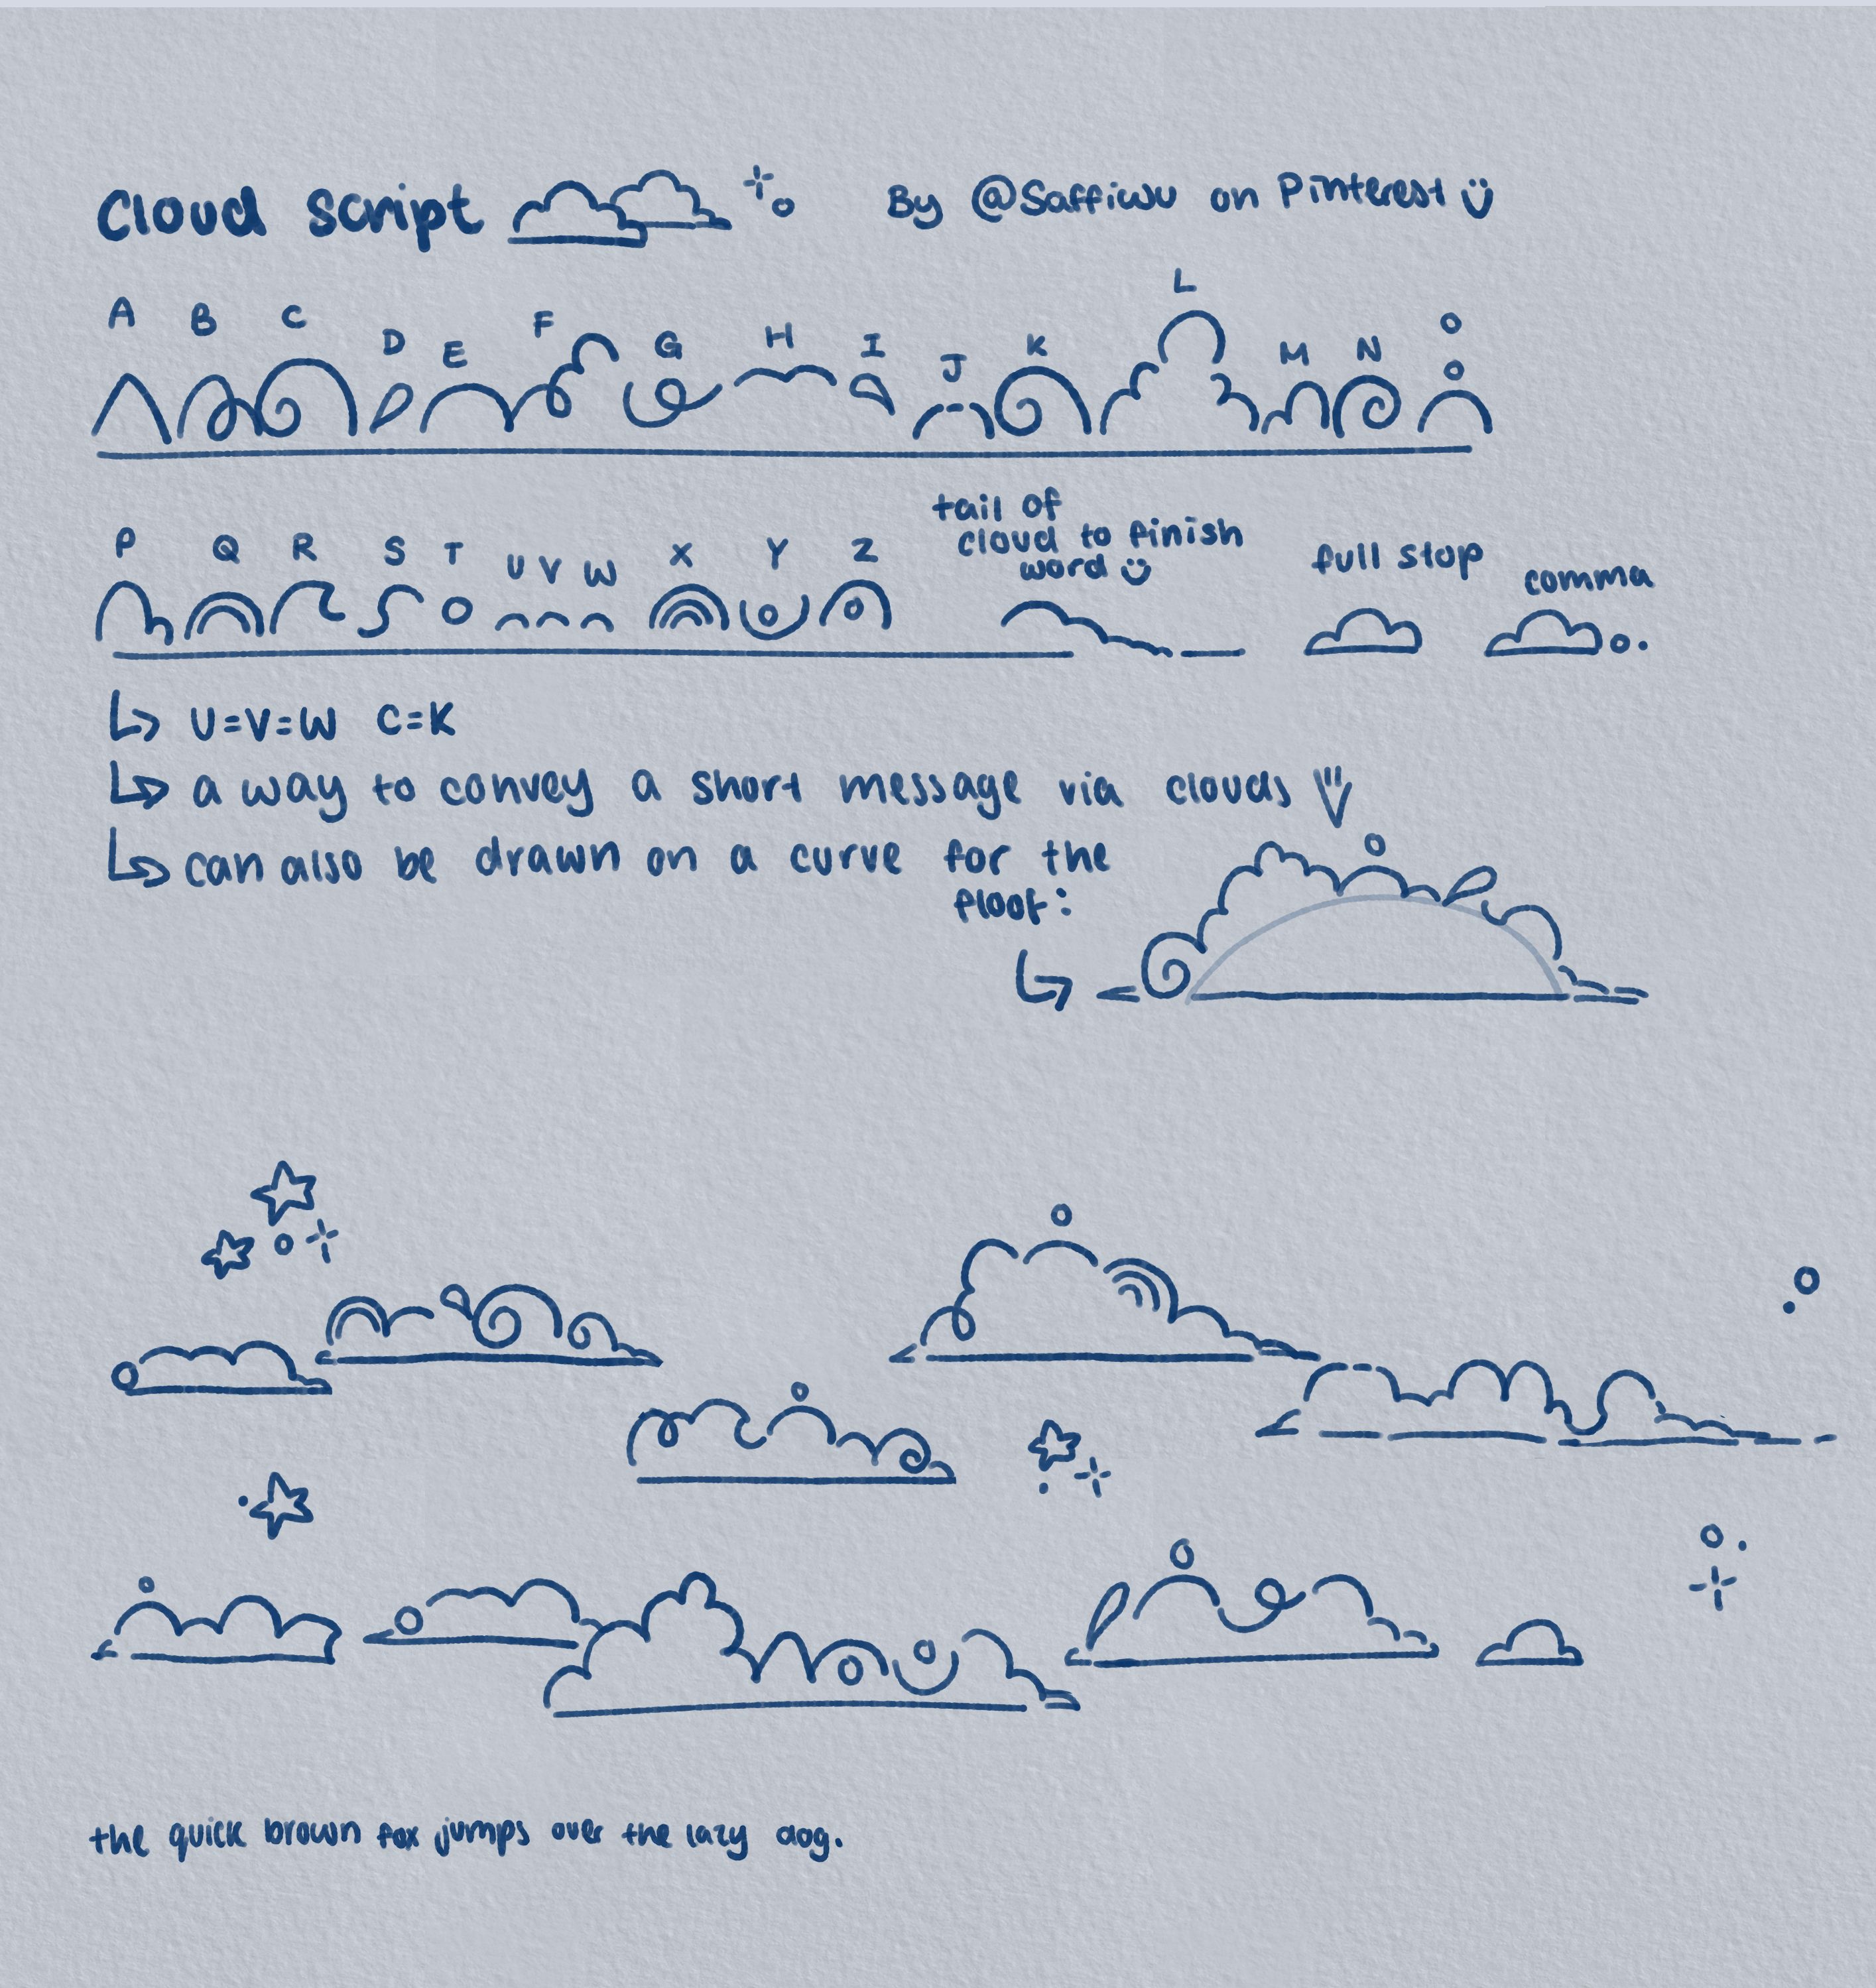 Cloud Script By @Saffiwu on Pinterest
A B C D E F G H I J K L M N O
P Q R S T U V W X Y Z
tail of
cloud to finish
word
full stop
comma
U=V=W C=K
a way to convey a short message via clouds
can also be drawn on a curve for the
floof:
the quick brown fox jumps over the lazy dog.